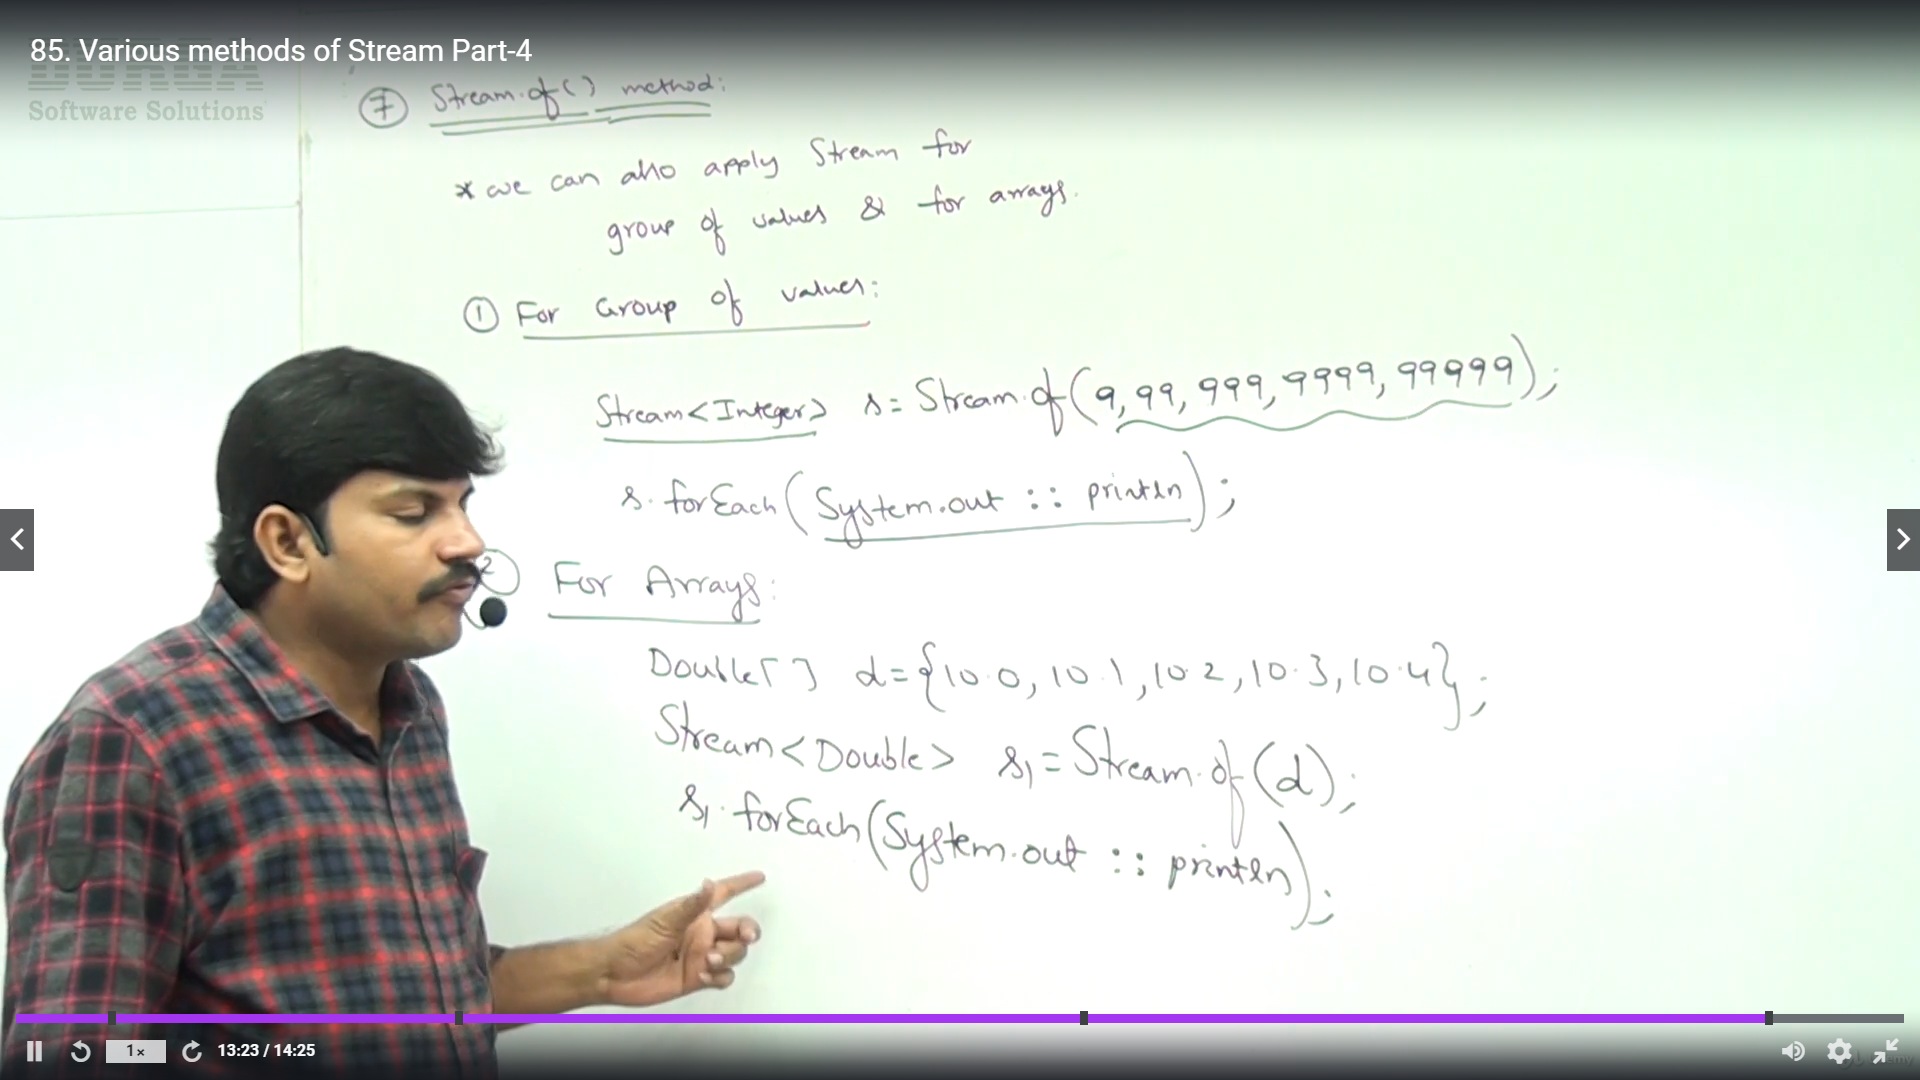 85. Various methods of Stream Part-4
DURGA
Software Solutions
7 Stream.of() method:
* we can also apply Stream for
group of values & for arrays.
1 For Group of values:
Stream<Integer> s = Stream.of(9, 99, 999, 9999, 99999);
s.forEach(System.out :: println);
2 For Arrays:
Double[] d={10.0, 10.1, 10.2, 10.3, 10.4};
Stream<Double> s1 = Stream.of(d);
s1.forEach(System.out :: println);
1x 13:23 / 14:25